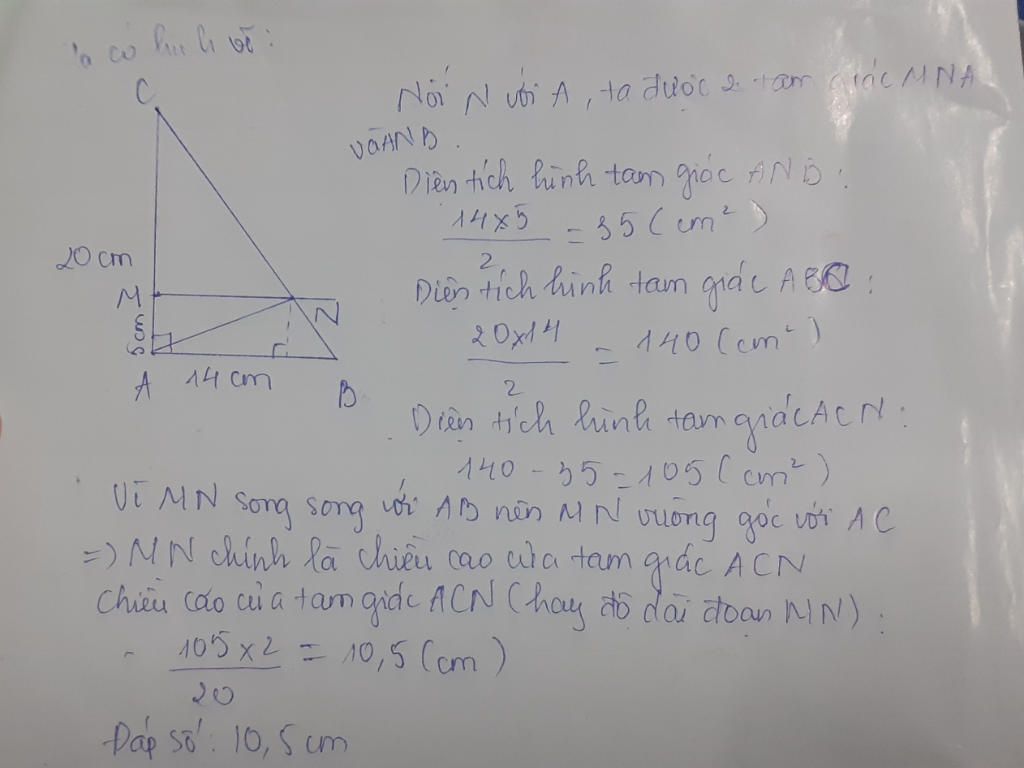 Ta có hình vẽ:
C
20 cm
M
N
5cm
A
14 cm
B
Nối N với A, ta được 2 tam giác MNA
và ANB.
Diện tích hình tam giác ANB:
14 x 5 / 2 = 35 (cm²)
Diện tích hình tam giác ABC:
20 x 14 / 2 = 140 (cm²)
Diện tích hình tam giác ACN:
140 - 35 = 105 (cm²)
Vì MN song song với AB nên MN vuông góc với AC
=> MN chính là chiều cao của tam giác ACN
Chiều cao của tam giác ACN (hay độ dài đoạn MN):
105 x 2 / 20 = 10,5 (cm)
Đáp số: 10,5 cm